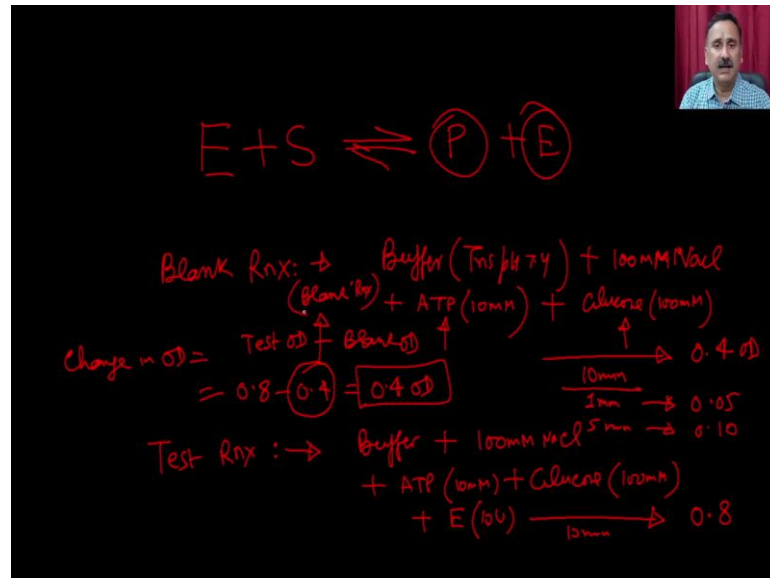 E + S ⇌ P + E
Blank Rnx: → Buffer (Tris pH 7.4) + 100mM NaCl
(Blank Rx) + ATP (10mM) + Glucose (100mM)
Change in OD = Test OD - Blank OD
→ 0.4 OD
10min
= 0.8 - 0.4 = 0.4 OD
1mn → 0.05
5mn → 0.10
Test Rnx : → Buffer + 100mM NaCl
+ ATP (10mM) + Glucose (100mM)
+ E (10U) → 0.8
10mn